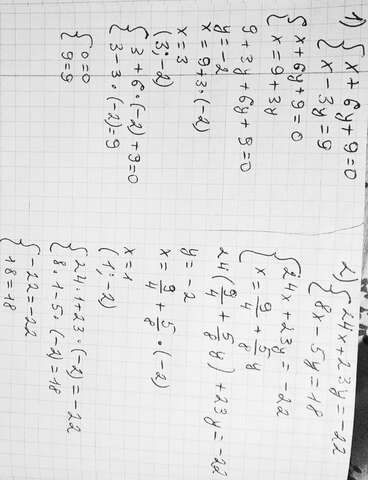 1) { x + 6y + 9 = 0
{ x - 3y = 9
{ x + 6y + 9 = 0
{ x = 9 + 3y
9 + 3y + 6y + 9 = 0
y = -2
x = 9 + 3 · (-2)
x = 3
(3; -2)
{ 3 + 6 · (-2) + 9 = 0
{ 3 - 3 · (-2) = 9
{ 0 = 0
{ 9 = 9
2) { 24x + 23y = -22
{ 8x - 5y = 18
{ 24x + 23y = -22
{ x = 9/4 + 5/8 y
24 (9/4 + 5/8 y) + 23y = -22
y = -2
x = 9/4 + 5/8 · (-2)
x = 1
(1; -2)
{ 24 · 1 + 23 · (-2) = -22
{ 8 · 1 - 5 · (-2) = 18
{ -22 = -22
{ 18 = 18